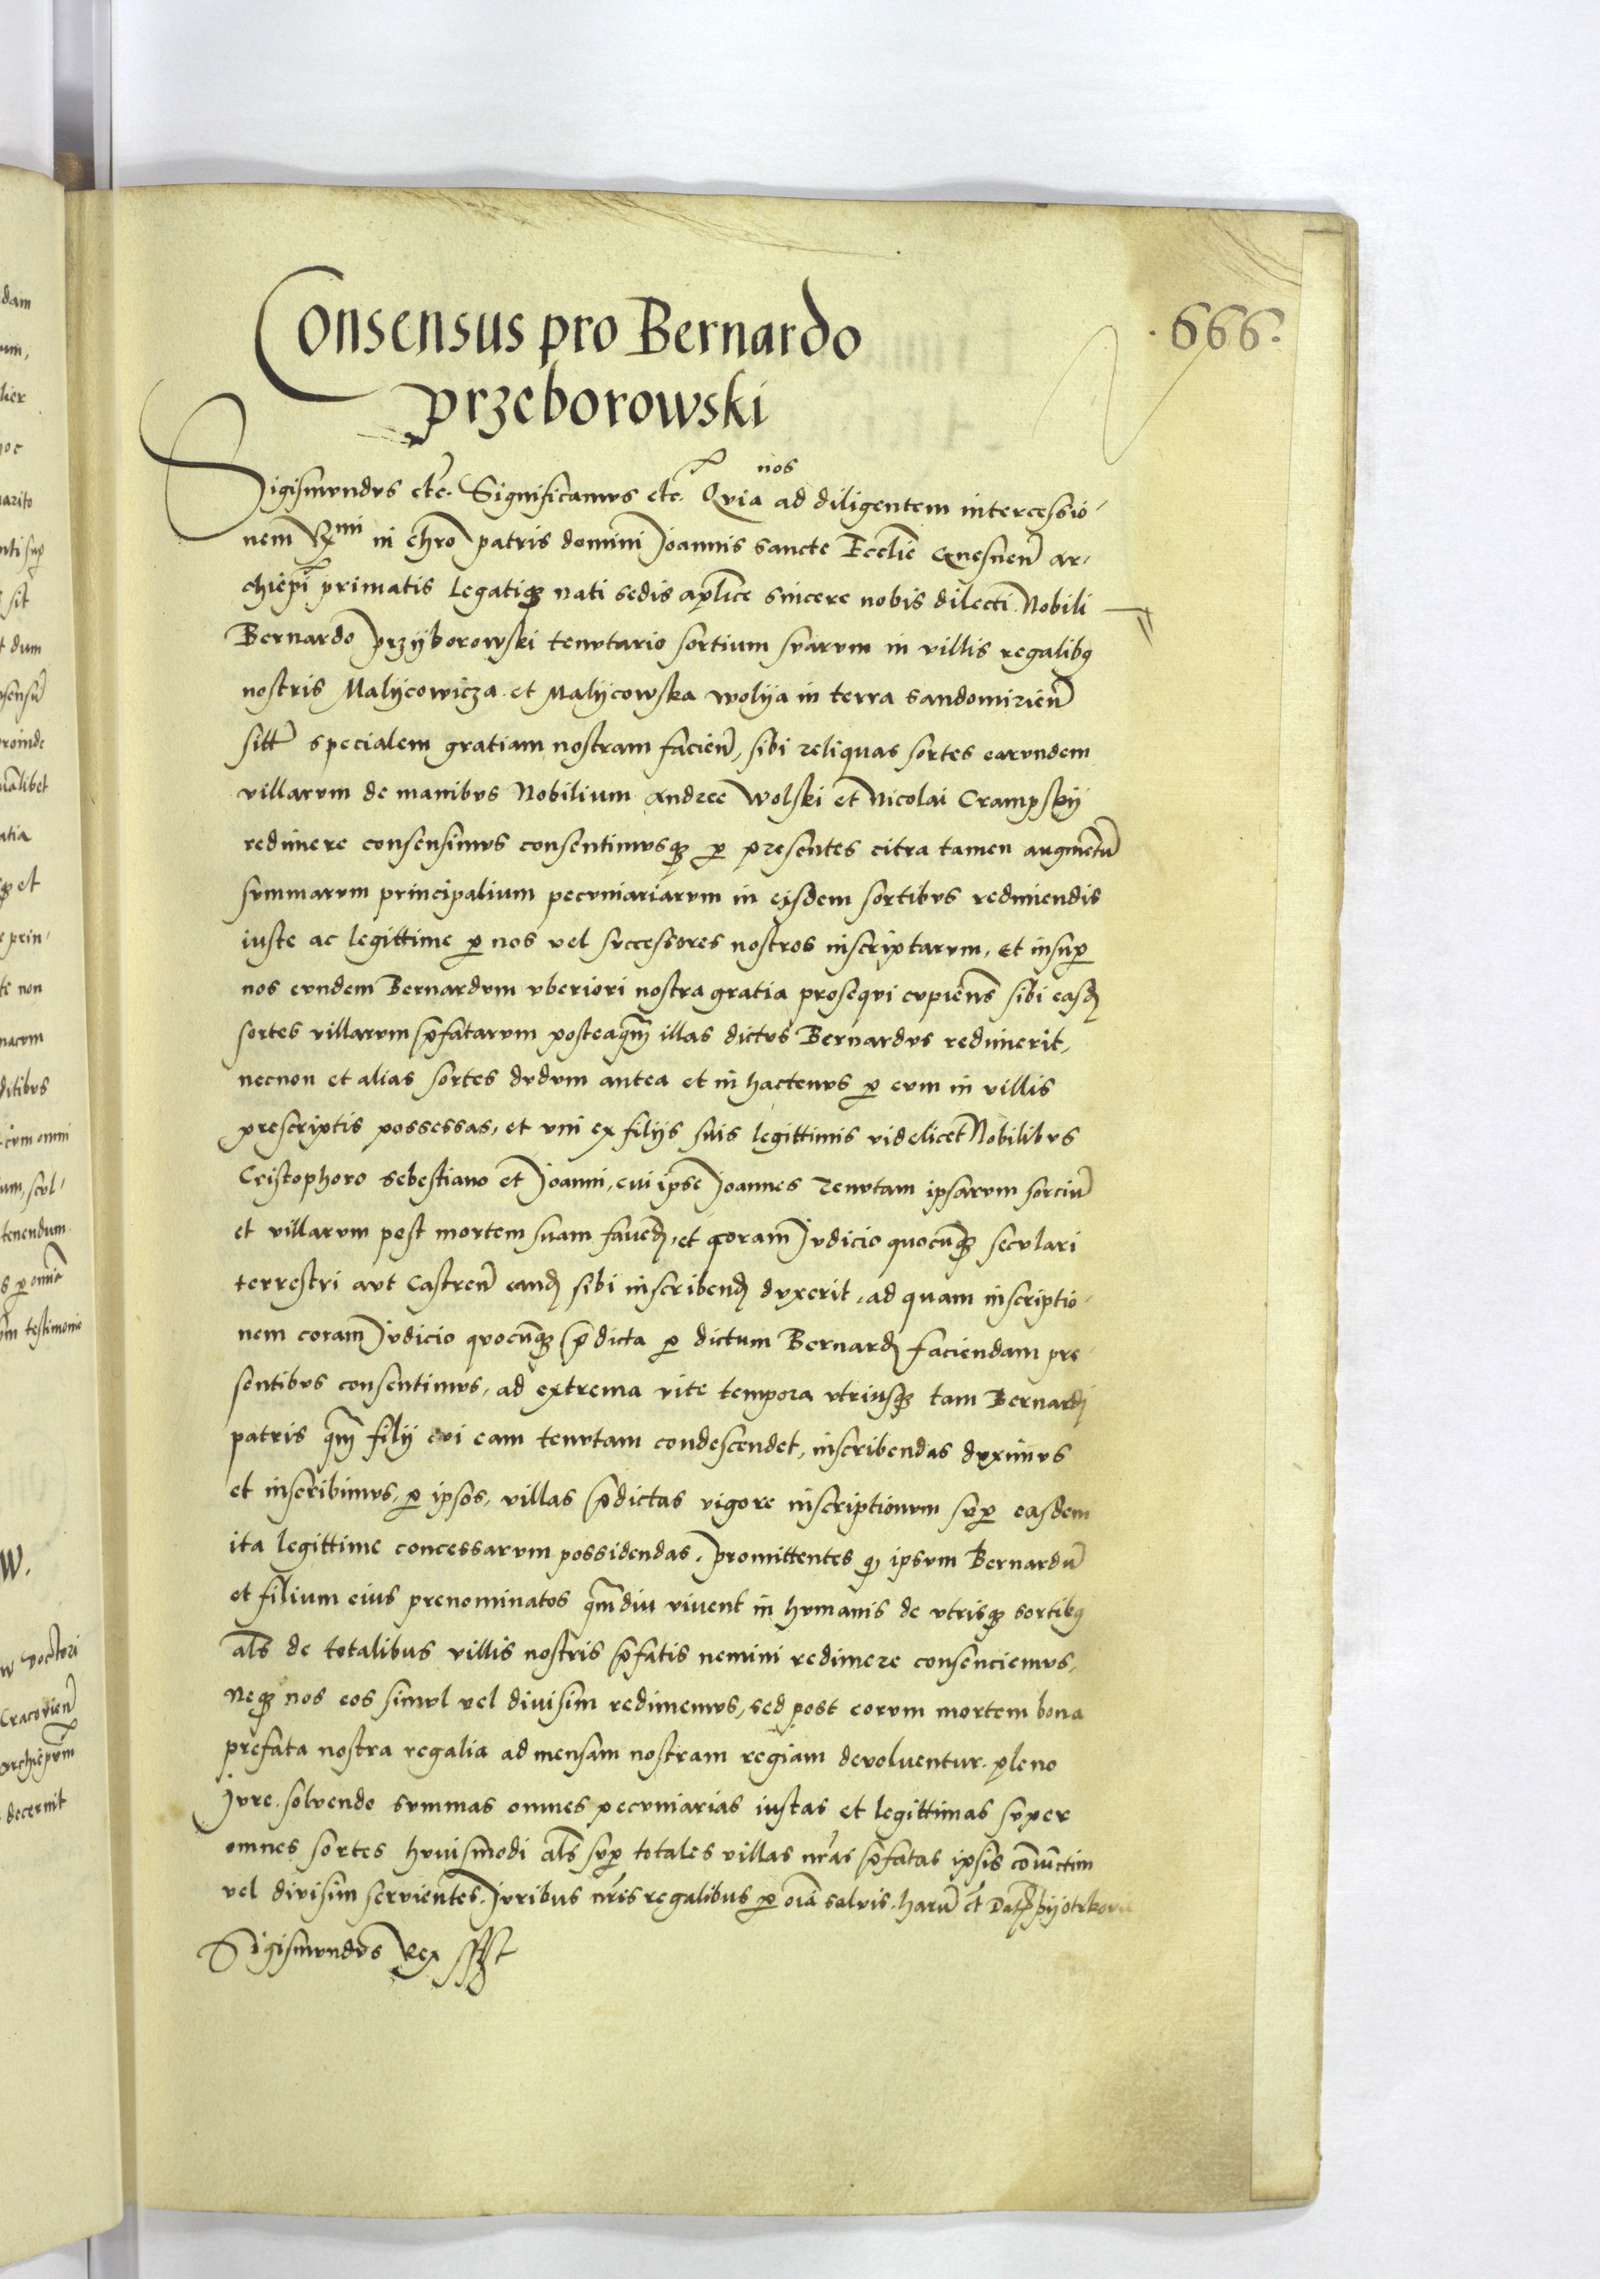 .666.
Consensus pro Bernardo
przeborowski
nos
Sigismundus etc̄. Significamus etc̄. Quia ad diligentem intercessio-
nem R̄mi in chr̄o patris domini Joannis sancte Eccl̄ie Gnesnen̄ ar-
chiep̄i primatis Legatiqꝫ nati sedis ap̄lice sincere nobis dilecti. Nobili
Bernardo przÿborowski tenutario sortium suarum in villis regalibꝰ
nostris Malÿcowicza et Malÿcowska wolÿa in terra sandomirien̄
sitt̄ specialem gratiam nostram facien̄, sibi reliquas sortes earundem
villarum de manibus Nobilium Andree Wolski et Nicolai Crampskÿ
redimere consensimus consentimusqꝫ ꝑ presentes citra tamen augment̄u
summarum principalium pecuniariarum in eisdem sortibus redimendis
iuste ac legittime ꝑ nos vel successores nostros inscriptarum, Et insuꝑ
nos eundem Bernardum uberiori nostra gratia prosequi cupiens sibi easd̄
sortes villarum p̄fatarum posteaqm̄ illas dictus Bernardus redimerit,
necnon et alias sortes dudum antea et in hactenus ꝑ eum in villis
prescriptis possessas, et uni ex filijs suis legittimis videlicet Nobilibus
Cristophoro sebestiano et Joanni, cui ipse Joannes Tenutam ipsarum sorciū
et villarum post mortem suam favend̄, et coram Judicio quocunqꝫ seculari
terrestri aut Castren̄ eand̄ sibi inscribend̄ duxerit, ad quam inscriptio-
nem coram Judicio quocunqꝫ p̄dicta ꝑ dictum Bernard̄ faciendam pre-
sentibus consentimus, ad extrema vite tempora utriusqꝫ tam Bernardi
patris qm̄ filij cui eam tenutam condescendet, inscribendas duximus
et inscribimus, ꝑ ipsos, villas p̄dictas vigore inscriptionum suꝑ easdem
ita legittime concessarum possidendas, promittentes qꝫ ipsum Bernardū
et filium eius prenominatos qm̄diu vivent in humanis de utrisqꝫ sortibꝰ
al̄s de totalibus villis nostris p̄fatis nemini redimere consenciemus,
Neqꝫ nos eos simul vel divisim redimemus, sed post eorum mortem bona
prefata nostra regalia ad mensam nostram regiam devolventur pleno
Jure. solvendo summas omnes pecuniarias iustas et legittimas super
omnes sortes huiusmodi al̄s suꝑ totales villas nr̄as p̄fatas ipsis coniunctim
vel divisim servientes. Juribus nr̄is regalibus ꝑ oīa salvis. harū et̄ Dat̄ pÿotrkovi
Sigismundus Rex sst